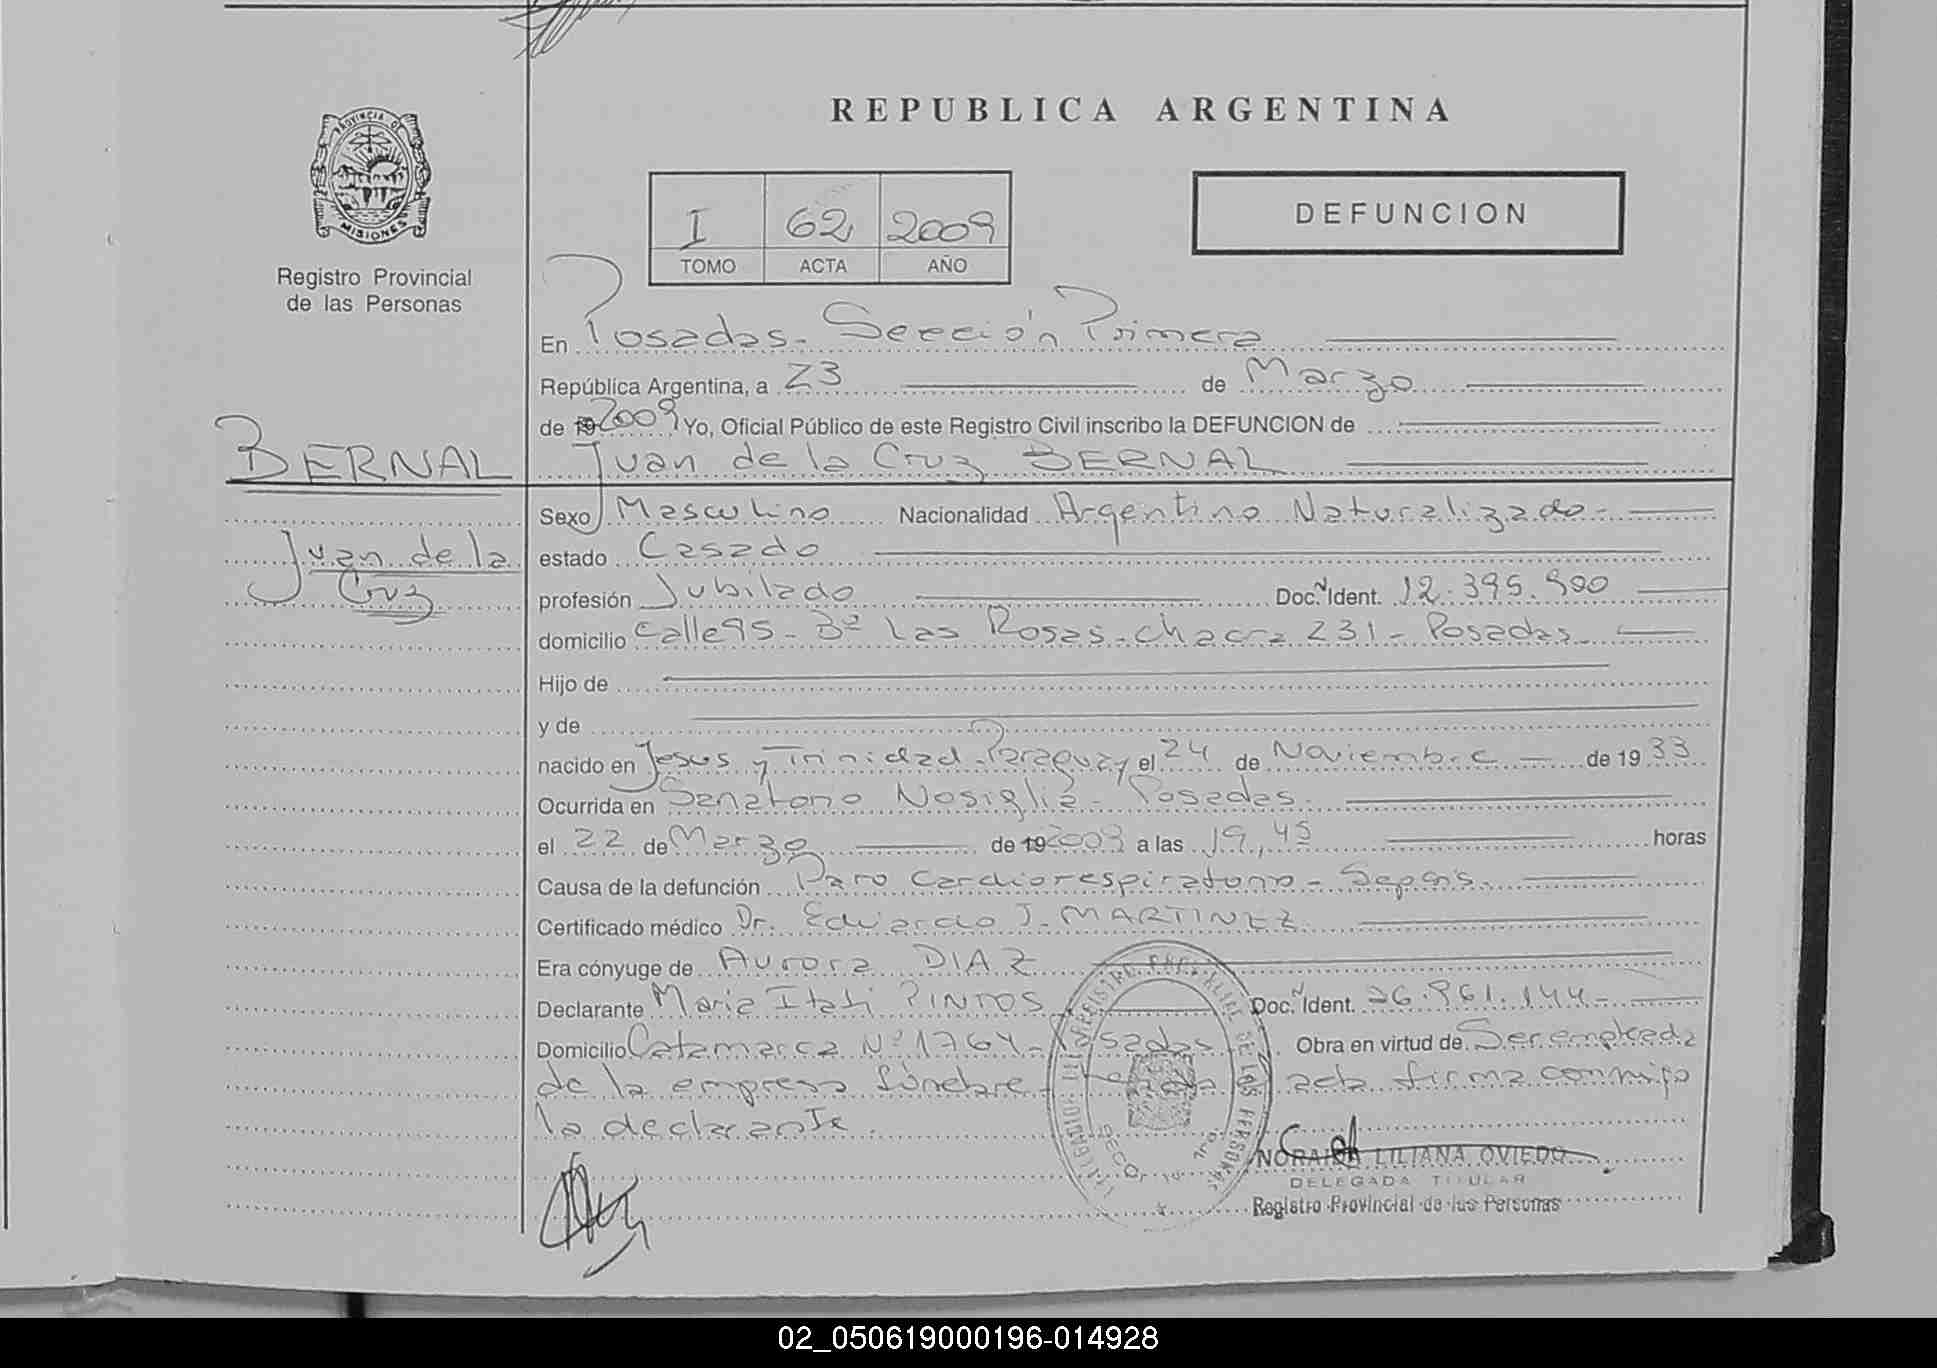 REPUBLICA ARGENTINA
PROVINCIA D
MISIONES
Registro Provincial
de las Personas
I 62 2009
TOMO ACTA AÑO
DEFUNCION
En Posadas - Sección Primera
República Argentina, a 23 de Marzo
de 19 2009 Yo, Oficial Público de este Registro Civil inscribo la DEFUNCION de
BERNAL
Juan de la Cruz BERNAL
Juan de la
Cruz
Sexo Masculino Nacionalidad Argentino Naturalizado -
estado Casado
profesión Jubilado Doc. N Ident. 12.395.900
domicilio Calle 95 - Bº Las Rosas - Chacra 231 - Posadas -
Hijo de
y de
nacido en Jesus y Trinidad - Paraguay el 24 de Noviembre de 19 33
Ocurrida en Sanatorio Nosiglia - Posadas.
el 22 de Marzo de 19 2009 a las 19,45 horas
Causa de la defunción Paro Cardiorespiratorio - Sepsis.
Certificado médico Dr. Eduardo J. MARTINEZ
Era cónyuge de Aurora DIAZ
Declarante Maria Itati PINTOS Doc. N Ident. 26.961.144 -
Domicilio Catamarca Nº 1764 - Posadas Obra en virtud de Ser empleada
de la empresa fúnebre - acta firma conmigo
la declarante.
DE LAS PERSONAS
NORAIDA LILIANA OVIEDO
DELEGADA TITULAR
Registro Provincial de las Personas
02_050619000196-014928